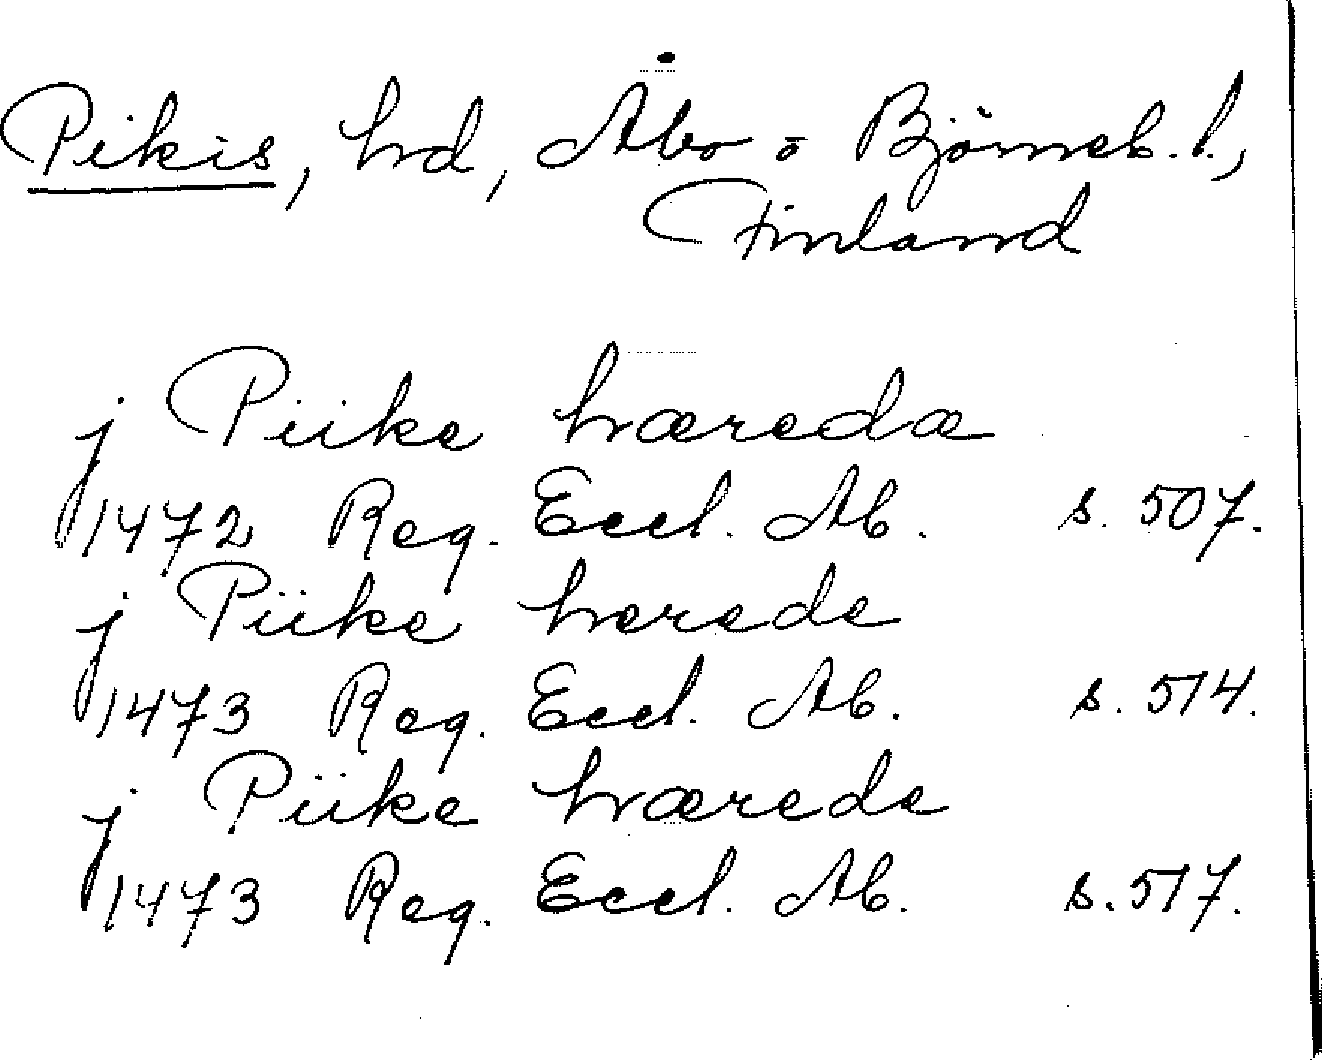 Pikis, hd, Åbo o Björneb. l.,
Finland
j Piike hæredæ
1472 Reg. Eccl. Ab. s. 507.
j Piike herede
1473 Reg. Eccl. Ab. s. 514.
j Piike hærede
1473 Reg. Eccl. Ab. s. 517.